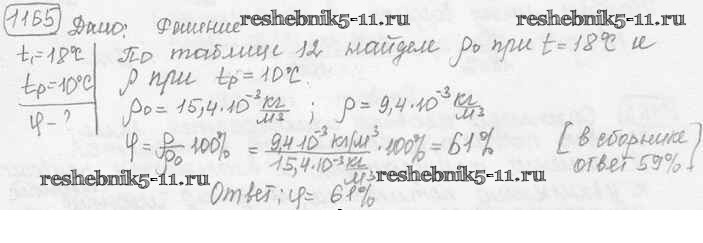 1165 Дано: Решение reshebnik5-11.ru reshebnik5-11.ru
t₁=18°C По таблице 12 найдем ρ₀ при t=18°C и
tρ=10°C ρ при tρ=10°C.
φ-? ρ₀=15,4·10⁻³ кг/м³ ; ρ=9,4·10⁻³ кг/м³
φ=ρ/ρ₀ 100% = 9,4·10⁻³ кг/м³ / 15,4·10⁻³ кг/м³ ·100% = 61% [в сборнике ответ 59%]
reshebnik5-11.ru reshebnik5-11.ru
Ответ: φ= 61%